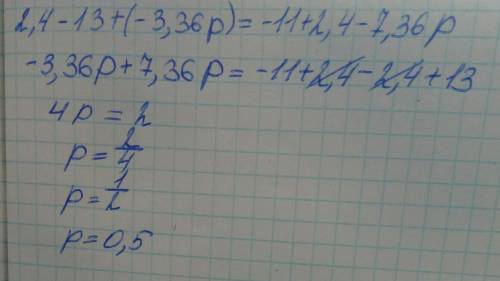 2,4-13+(-3,36p)=-11+2,4-7,36p
-3,36p+7,36p=-11+2,4-2,4+13
4p=2
p=2/4
p=1/2
p=0,5